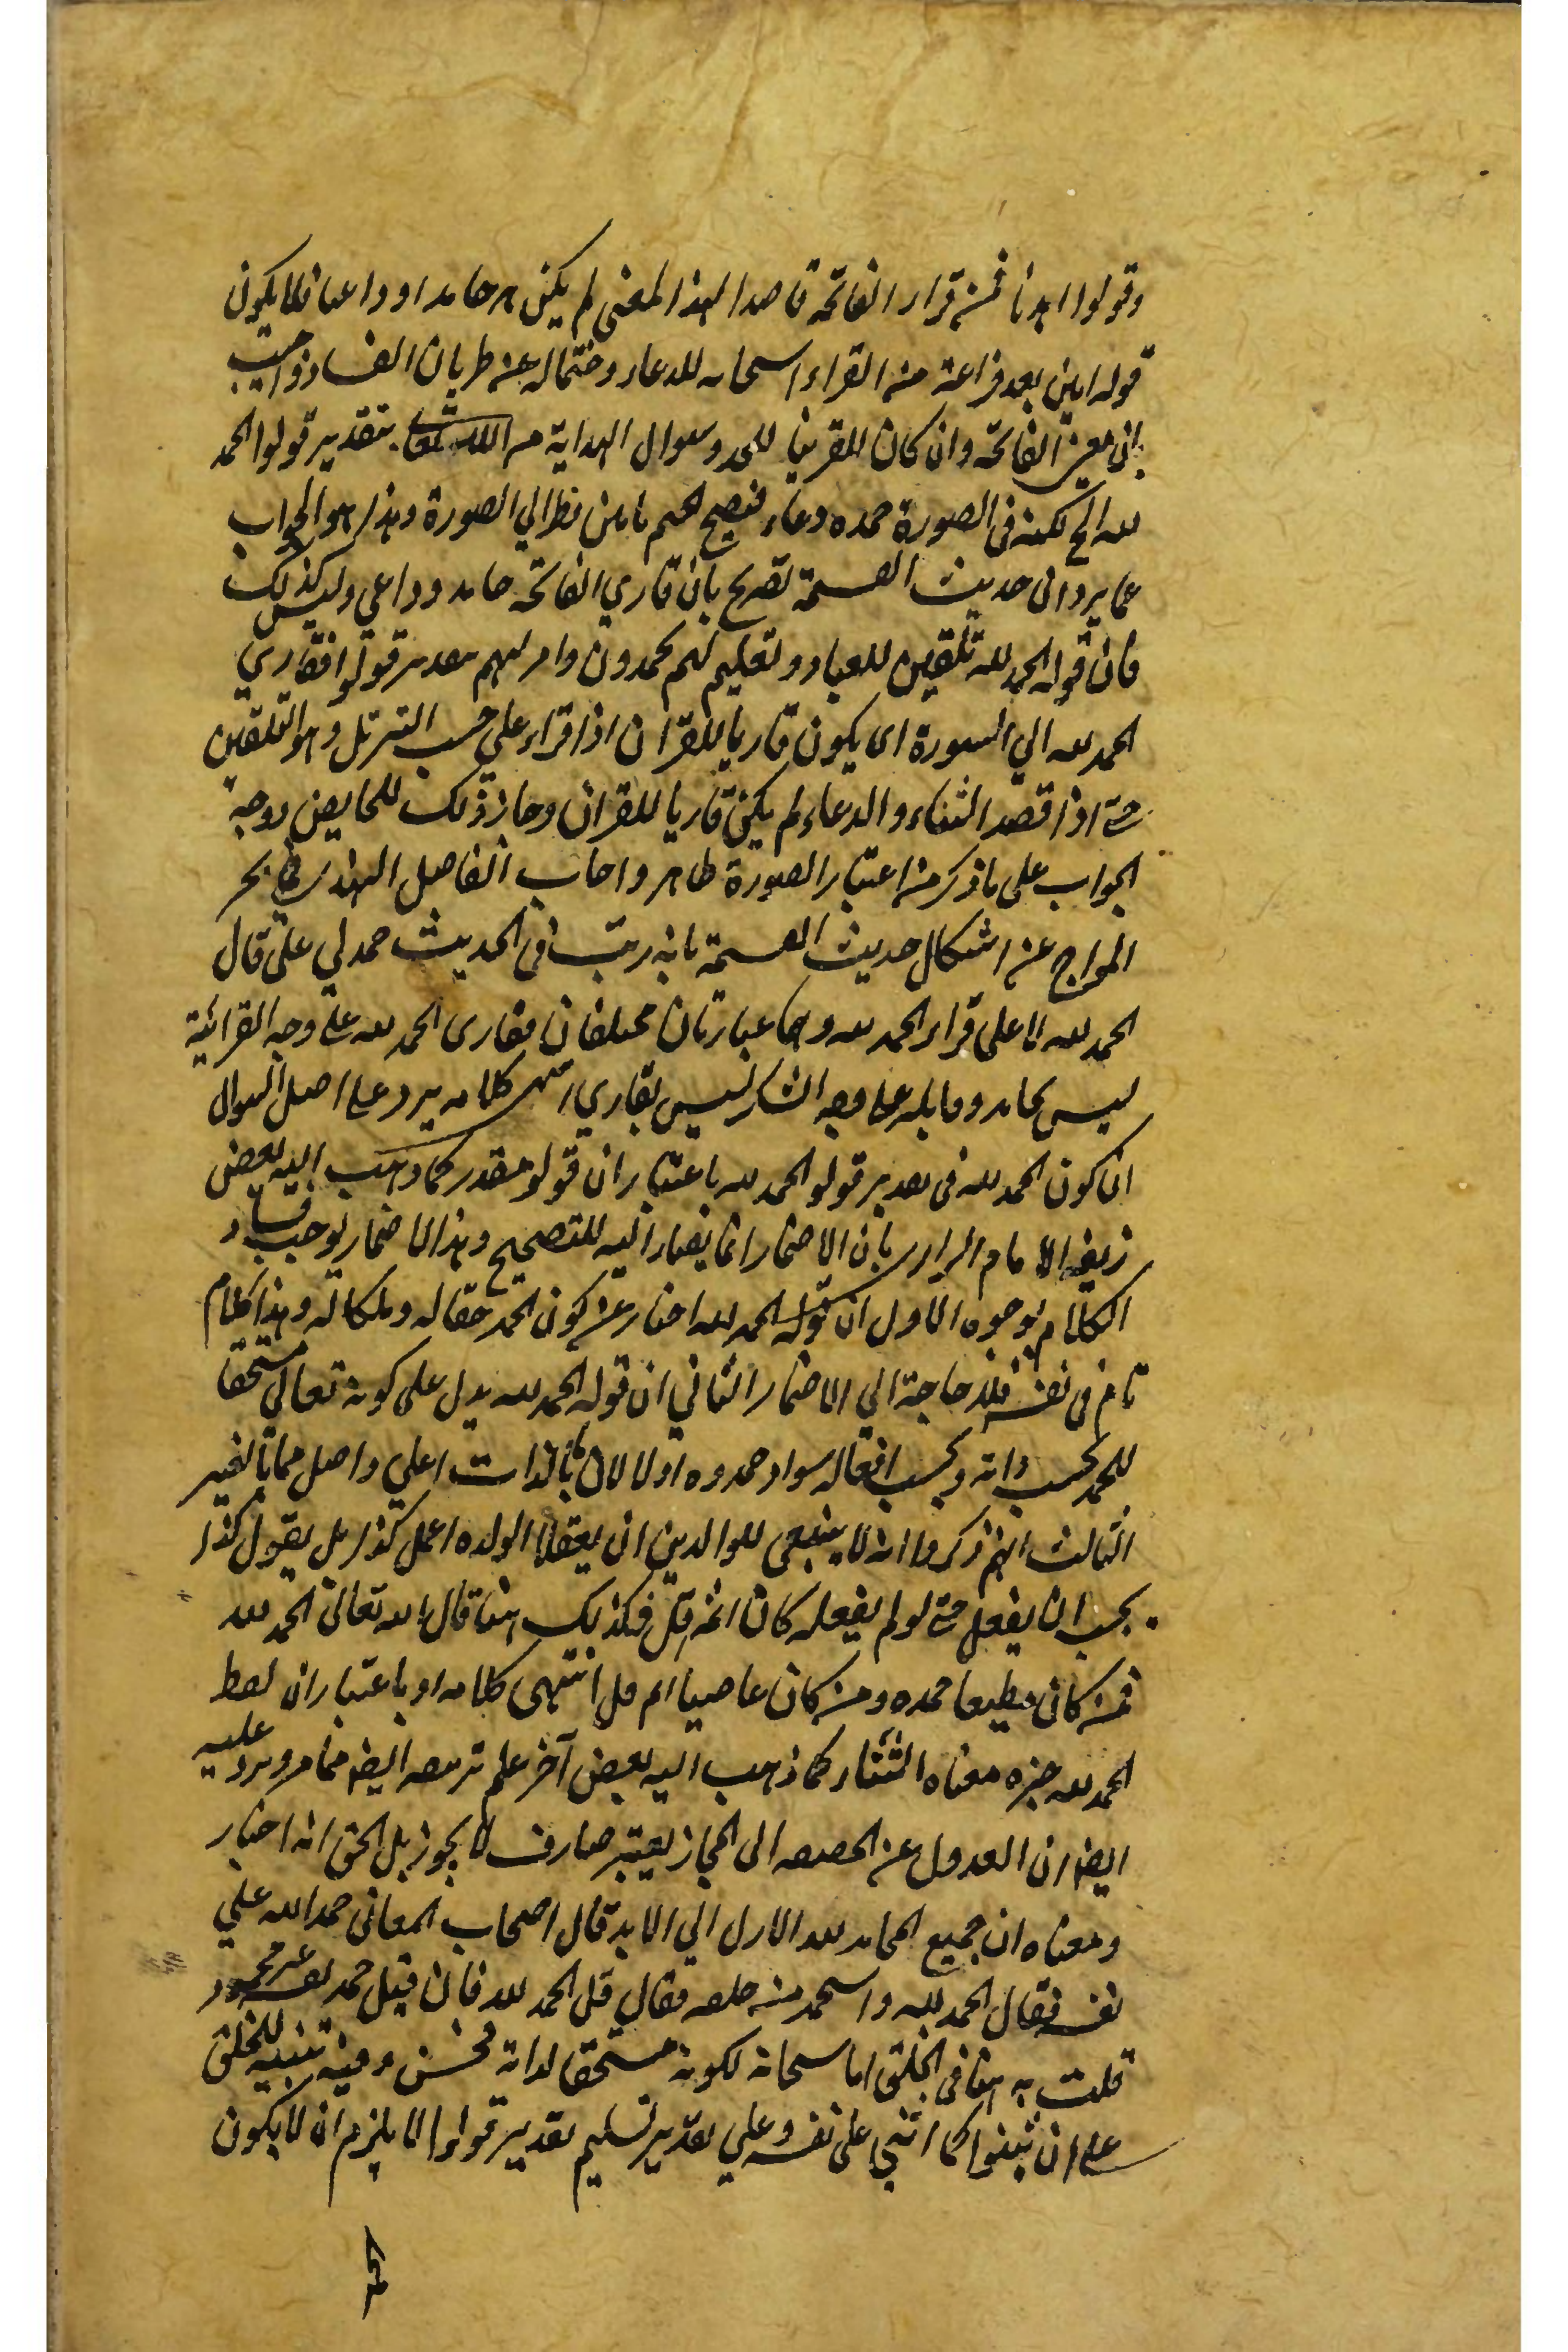 وقولوا اهدنا فمن قراء الفاتحة قاصدا لهذا المعنى لم يكن حامدا او داعيا فلا يكون
قوله امين بعد فراغه من القراء استجابه للدعاء وختما له عن طريان الفساد واجيب
بان معنى الفاتحة وان كان تلقين للحمد وسوال الهداية من الله تعالى بتقدير قولوا الحمد
لله الخ لكنه فى الصورة حمده ودعاء فيصح الختم بامين نظرا الي الصورة وبهذا هو الجواب
عما يرد ان حديث القسمة تصريح بان قاري الفاتحة حامد وداعي وليس كذلك
فان قوله الحمد لله تلقين للعباد وتعليم لهم يحمدون وامر لهم بتقدير قولوا فقاري
الحمد لله الي السورة انما يكون قاريا للقران اذا قراء علي حسب التنزل وهو التلقين
حتى اذا قصد الثناء والدعاء لم يكن قاريا للقران وجاز ذلك للحايض ووجه
الجواب على ما ذكر من اعتبار الصورة ظاهر واجاب الفاضل الهندي فى بحر
المواج عن اشكال حديث القسمة بانه رتب فى الحديث حمد لي على قال
الحمد لله لا على قراء الحمد لله وهما عبارتان مختلفان فقاري الحمد لله على وجه القرائية
ليس بحامد وقايله على وجه الشكر ليس بقاري انتهى كلامه يرد على اصل السوال
ان كون الحمد لله فى تقدير قولوا الحمد لله باعتبار ان قولوا مقدر كما ذهب اليه بعض
زيفه الامام الرازي بان الاضمار انما يصار اليه للتصحيح وهذا الاضمار يوجب فساد
الكلام بوجوه الاول ان قوله الحمد لله اخبار عن كون الحمد حقا له وملكا له وهذا كلام
تام فى نفسه فلا حاجة الي الاضمار الثاني ان قوله الحمد لله يدل على كونه تعالي مستحقا
للحمد بحسب ذاته وبحسب افعاله سواء حمدوه او لا لان ما بالذات اعلي واصل مما بالغير
الثالث انهم ذكروا انه لا ينبغى للوالدين ان يقولا لولده اعمل كذا بل يقول كذا
يجب ان يفعل حتى لو لم يفعله كان اثمه اقل فكذلك هنا قال الله تعالى الحمد لله
فمن كان مطيعا حمده ومن كان عاصيا اثم اقل انتهى كلامه او باعتبار ان لفظ
الحمد لله خبره معناه الثناء كما ذهب اليه بعض آخر علم تزييفه ايضا مما مر ويرد عليه
ايضا ان العدول عن الحقيقة الى المجاز بغير صارف لا يجوز بل الحق انه اخبار
ومعناه ان جميع المحامد لله الازل الي الابد قال اصحاب المعانى حمد الله علي
نفسه فقال الحمد لله واستحمد من خلقه فقال قل الحمد لله فان قيل حمد نفسه غير محمود
قلت به هنا فى الخلق اما سبحانه لكونه مستحقا لذاته فحسن وفيه تنبيه للخلق
على ان يثنوا كما اثني على نفسه وعلي تقدير تسليم تقدير قولوا لا يلزم ان لا يكون